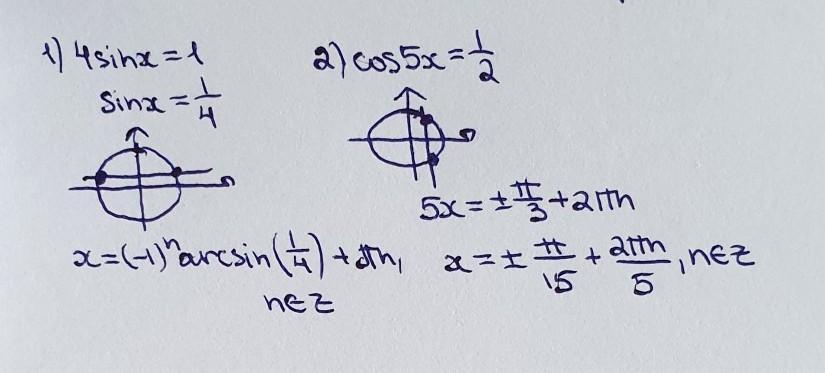 1) 4sinx = 1
sinx = 1/4
x = (-1)ⁿ arcsin(1/4) + πn,
n∈Z
2) cos5x = 1/2
5x = ± π/3 + 2πn
x = ± π/15 + 2πn/5, n∈Z